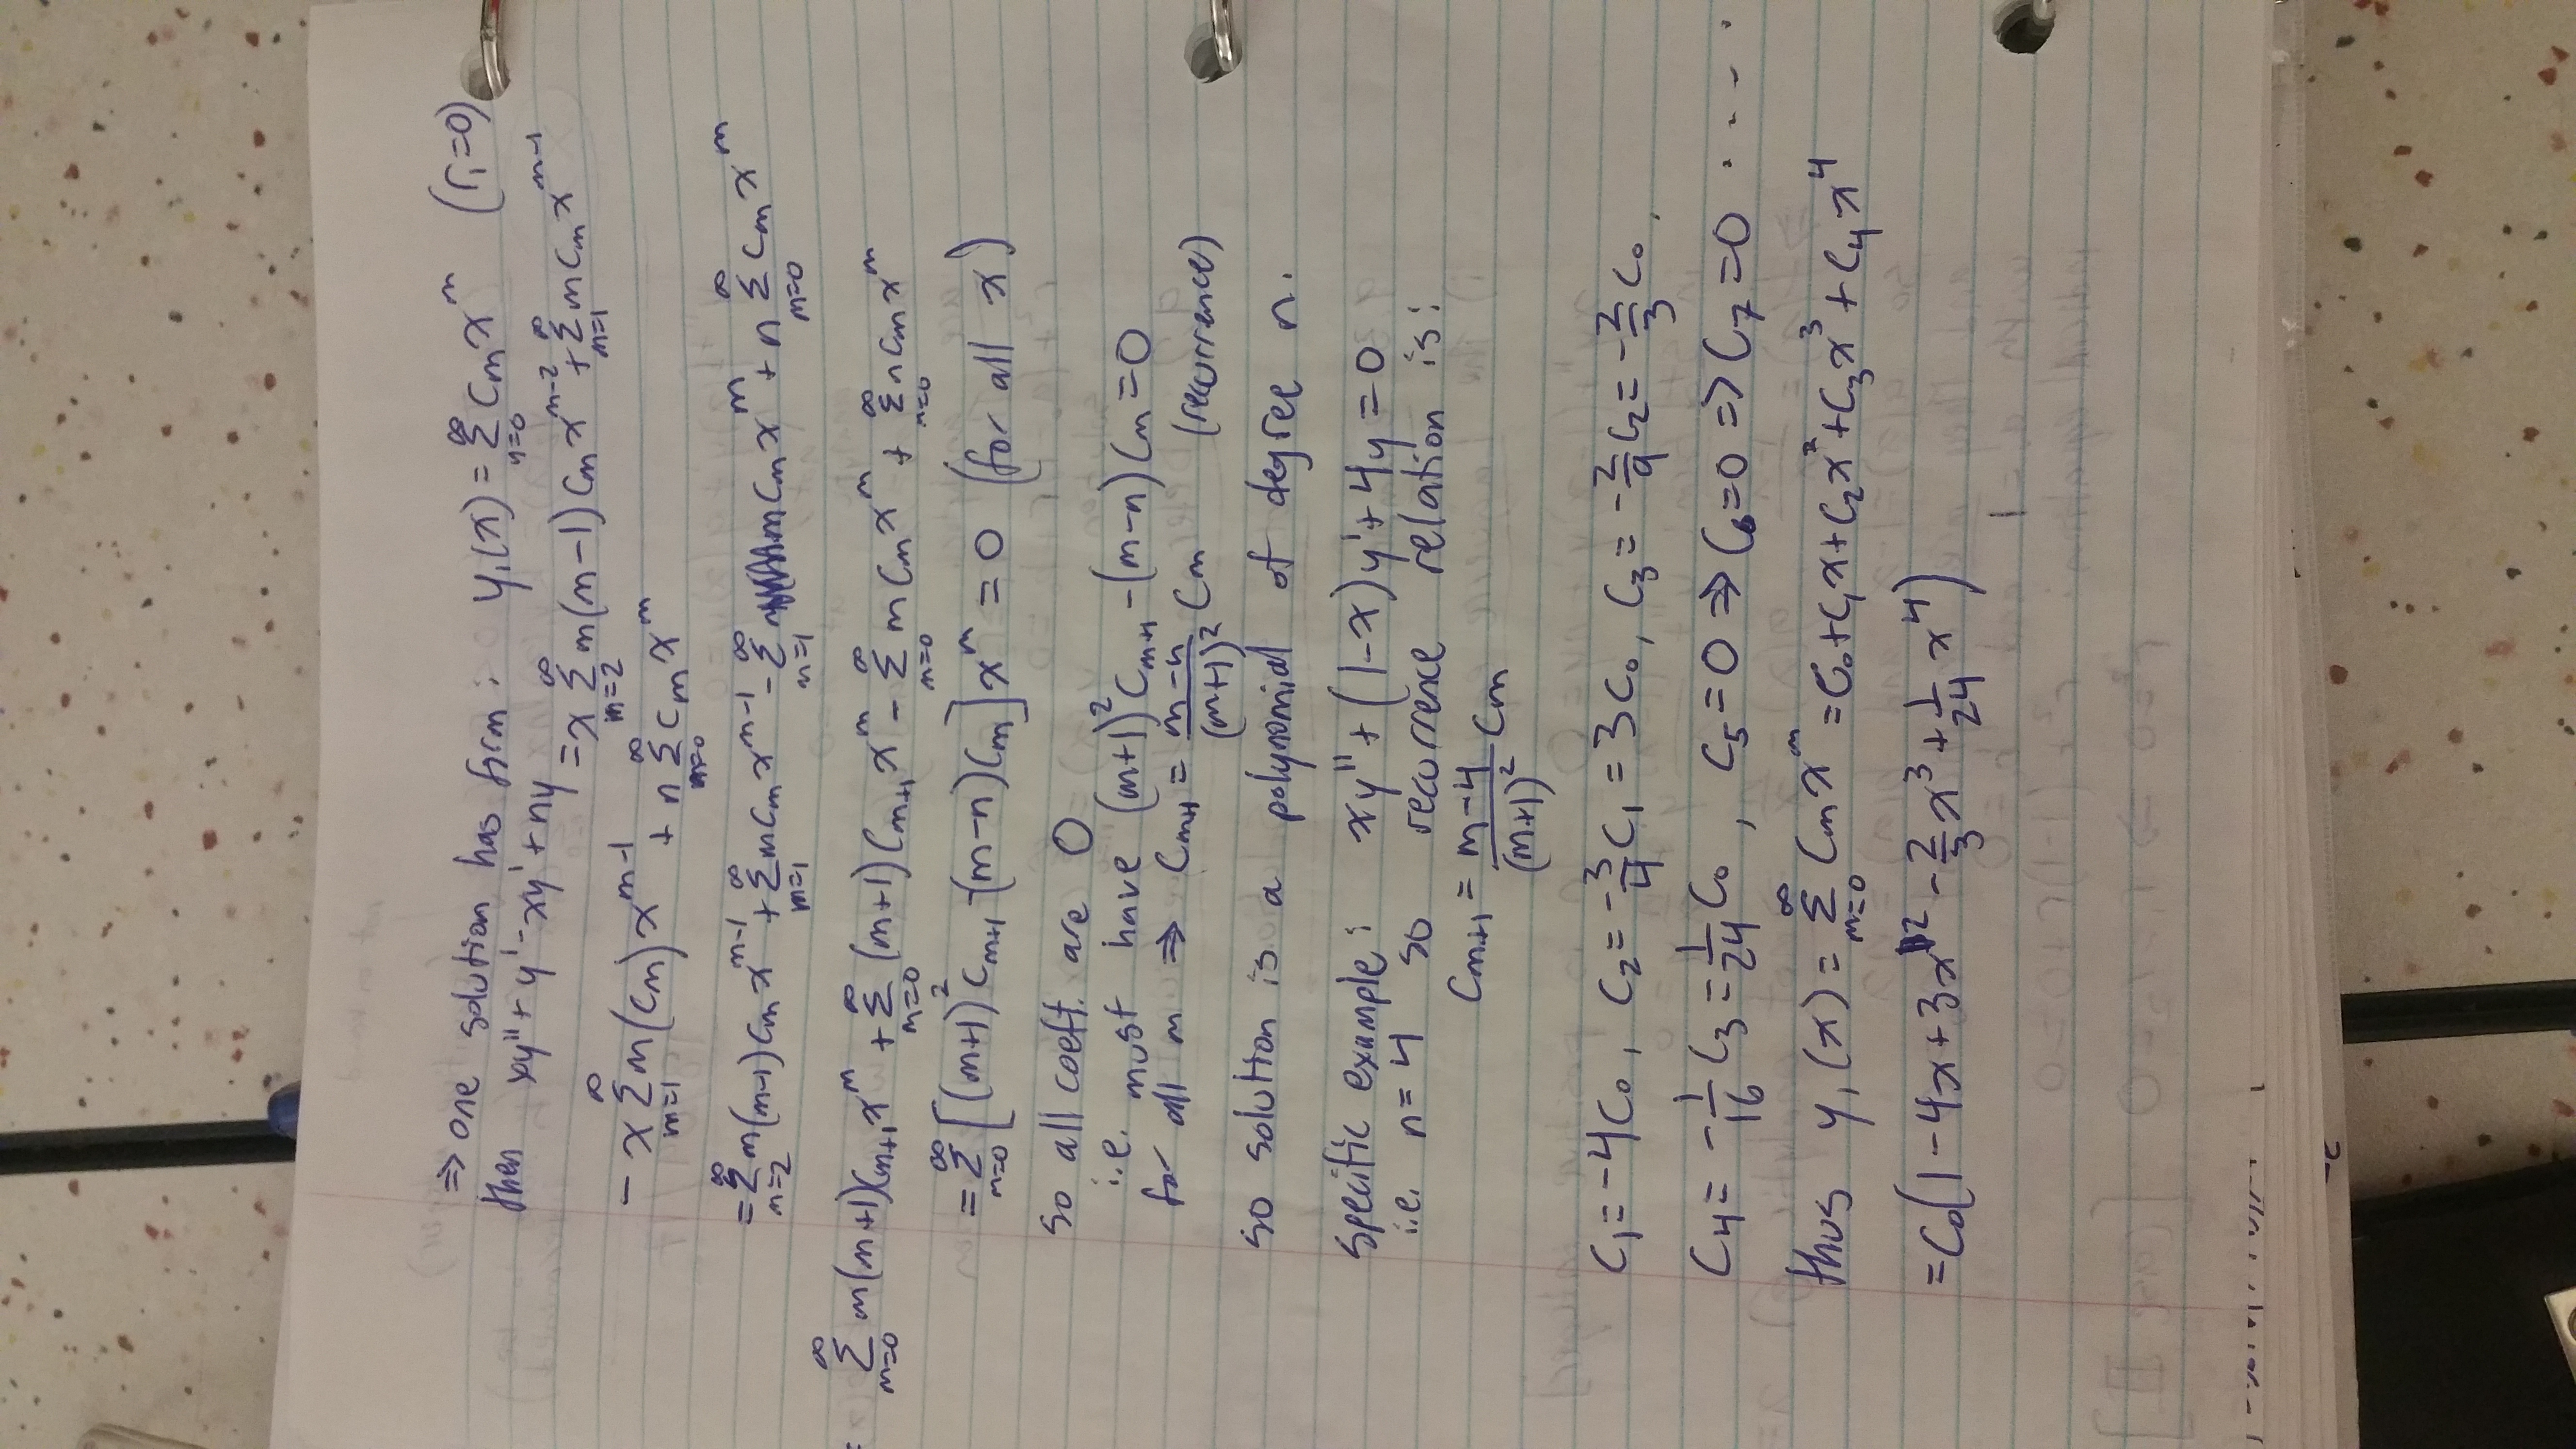 ⇒ one solution has form: y₁(x) = ∑_{n=0}^∞ Cₘ xᵐ (r₁=0)
then xy'' + y' - xy' + ny = x ∑_{m=2}^∞ m(m-1) Cₘ x^{m-2} + ∑_{m=1}^∞ m Cₘ x^{m-1}
- x ∑_{m=1}^∞ m(Cₘ) x^{m-1} + n ∑_{m=0}^∞ Cₘ xᵐ
= ∑_{m=2}^∞ m(m-1) Cₘ x^{m-1} + ∑_{m=1}^∞ m Cₘ x^{m-1} - ∑_{m=1}^∞ m Cₘ xᵐ + n ∑_{m=0}^∞ Cₘ xᵐ
= ∑_{m=0}^∞ m(m+1) C_{m+1} xᵐ + ∑_{m=0}^∞ (m+1) C_{m+1} xᵐ - ∑_{m=0}^∞ m Cₘ xᵐ + ∑_{m=0}^∞ n Cₘ xᵐ
= ∑_{m=0}^∞ [(m+1)² C_{m+1} - (m-n) Cₘ] xᵐ = 0 (for all x)
so all coeft. are 0
i.e. must have (m+1)² C_{m+1} - (m-n) Cₘ = 0
for all m ⇒ C_{m+1} = \frac{m-n}{(m+1)²} Cₘ (recurrence)
so solution is a polynomial of degree n.
specific example: xy'' + (1-x)y' + 4y = 0
i.e. n=4 so recurrence relation is:
C_{m+1} = \frac{m-4}{(m+1)²} Cₘ
C₁ = -4C₀, C₂ = -\frac{3}{4} C₁ = 3C₀, C₃ = -\frac{2}{9} C₂ = -\frac{2}{3} C₀,
C₄ = -\frac{1}{16} C₃ = \frac{1}{24} C₀, C₅ = 0 ⇒ C₆ = 0 ⇒ C₇ = 0 ....
thus y₁(x) = ∑_{m=0}^∞ Cₘ xᵐ = C₀ + C₁x + C₂x² + C₃x³ + C₄x⁴
= C₀(1 - 4x + 3x² - \frac{2}{3} x³ + \frac{1}{24} x⁴)